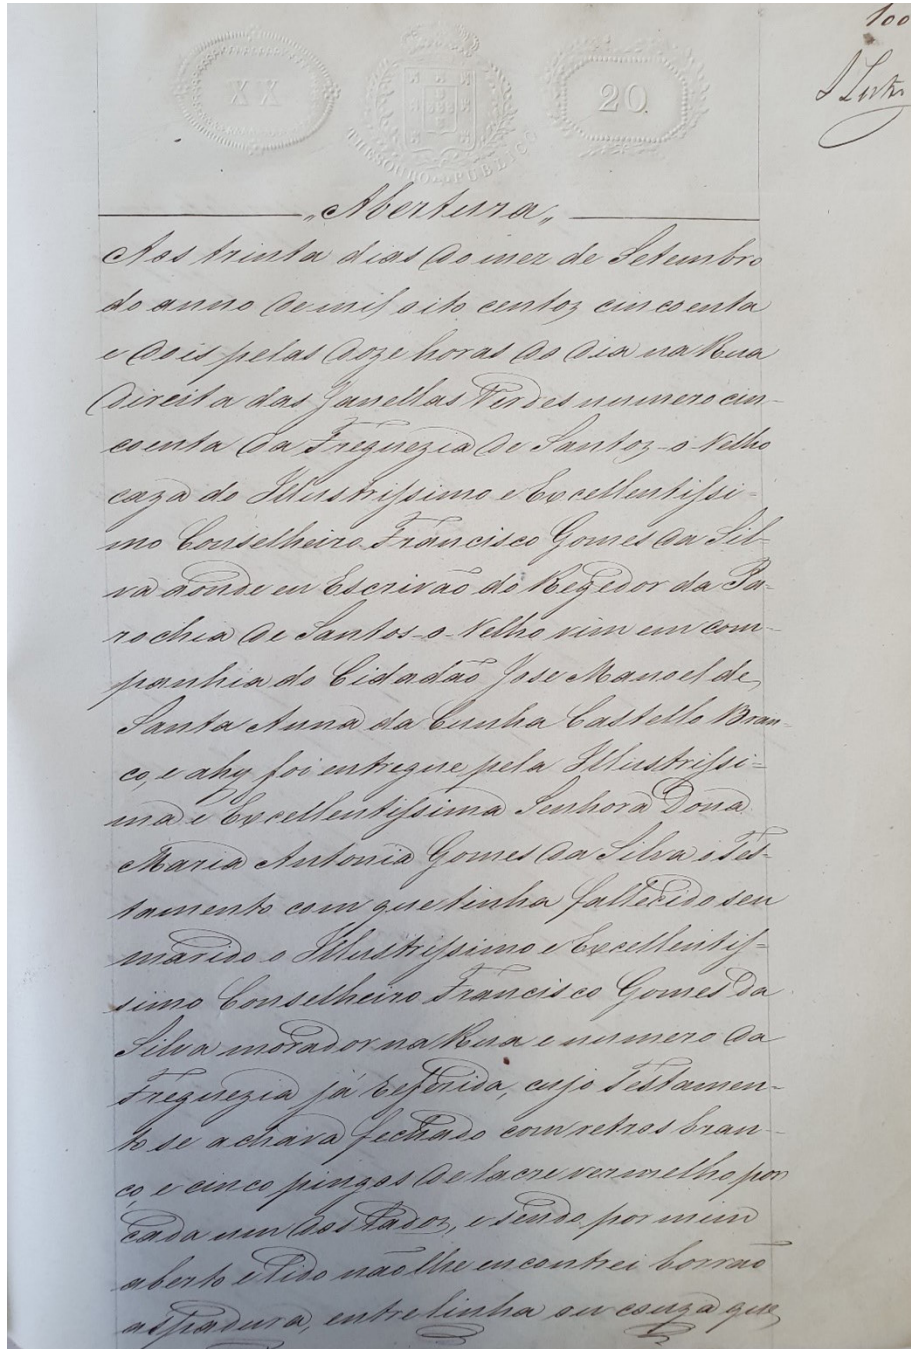 100
XX
THESOURO PUBLICO
20
„Abertura„
Aos trinta dias do mez de Setembro
do anno de mil oito centoz cincoenta
e dois pelas doze horas do dia na Rua
direita das Janellas Verdes numero cin-
coenta da Freguezia de Santoz-o-Velho
caza do Illustrissimo e Excellentissi=
mo Conselheiro Francisco Gomes da Sil-
va aonde eu Escrivão do Regedor da Pa-
rochia de Santos-o-Velho vim em com-
panhia do Cidadão Jose Manoel de
Santa Anna da Cunha Castello Bran-
co, e ahy foi entregue pela Illustrissi=
ma e Excellentissima Senhora Dona
Maria Antonia Gomes da Silva o Tes-
tamento com que tinha fallecido seu
marido o Illustrissimo e Excellentis=
simo Conselheiro Francisco Gomes da
Silva morador na Rua e numero da
Freguezia já referida, cujo Testamen-
to se achava fechado com retros bran-
co, e cinco pingos de lacre vermelho por
cada um dos lados, e sendo por mim
aberto e lido não lhe encontrei borrão
aspadura, entrelinha ou couza que